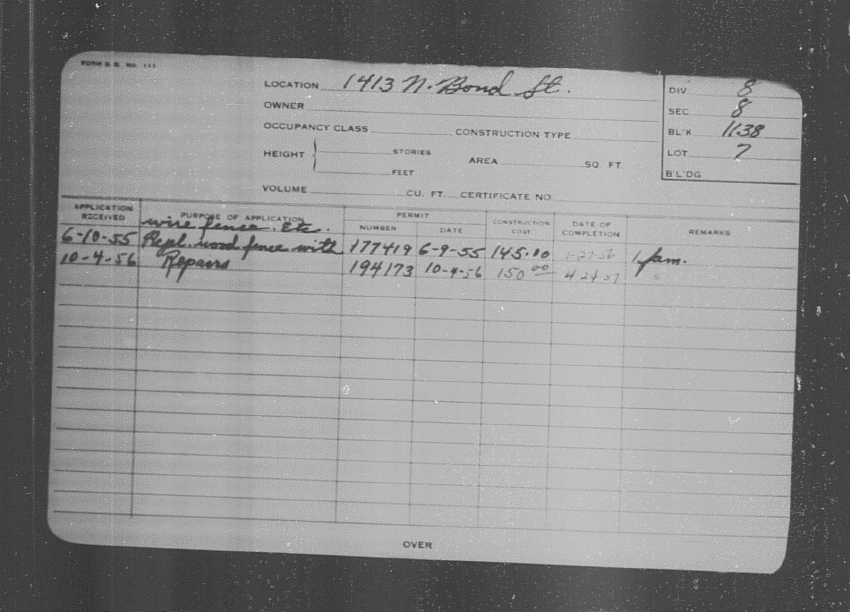 FORM B. B. NO. 111
LOCATION 1413 N. Bond St.
OWNER
OCCUPANCY CLASS CONSTRUCTION TYPE
HEIGHT STORIES
FEET
AREA SQ. FT.
VOLUME CU. FT. CERTIFICATE NO.
DIV 8
SEC 8
BL'K 1138
LOT 7
B'L'DG
APPLICATION RECEIVED PURPOSE OF APPLICATION PERMIT NUMBER DATE CONSTRUCTION COST DATE OF COMPLETION REMARKS
wire fence. Etc.
6-10-55 Repl. wood fence with 177419 6-9-55 145.00 1-27-56 1 fam.
10-4-56 Repairs 194173 10-4-56 150 00 4 24 57 "
OVER